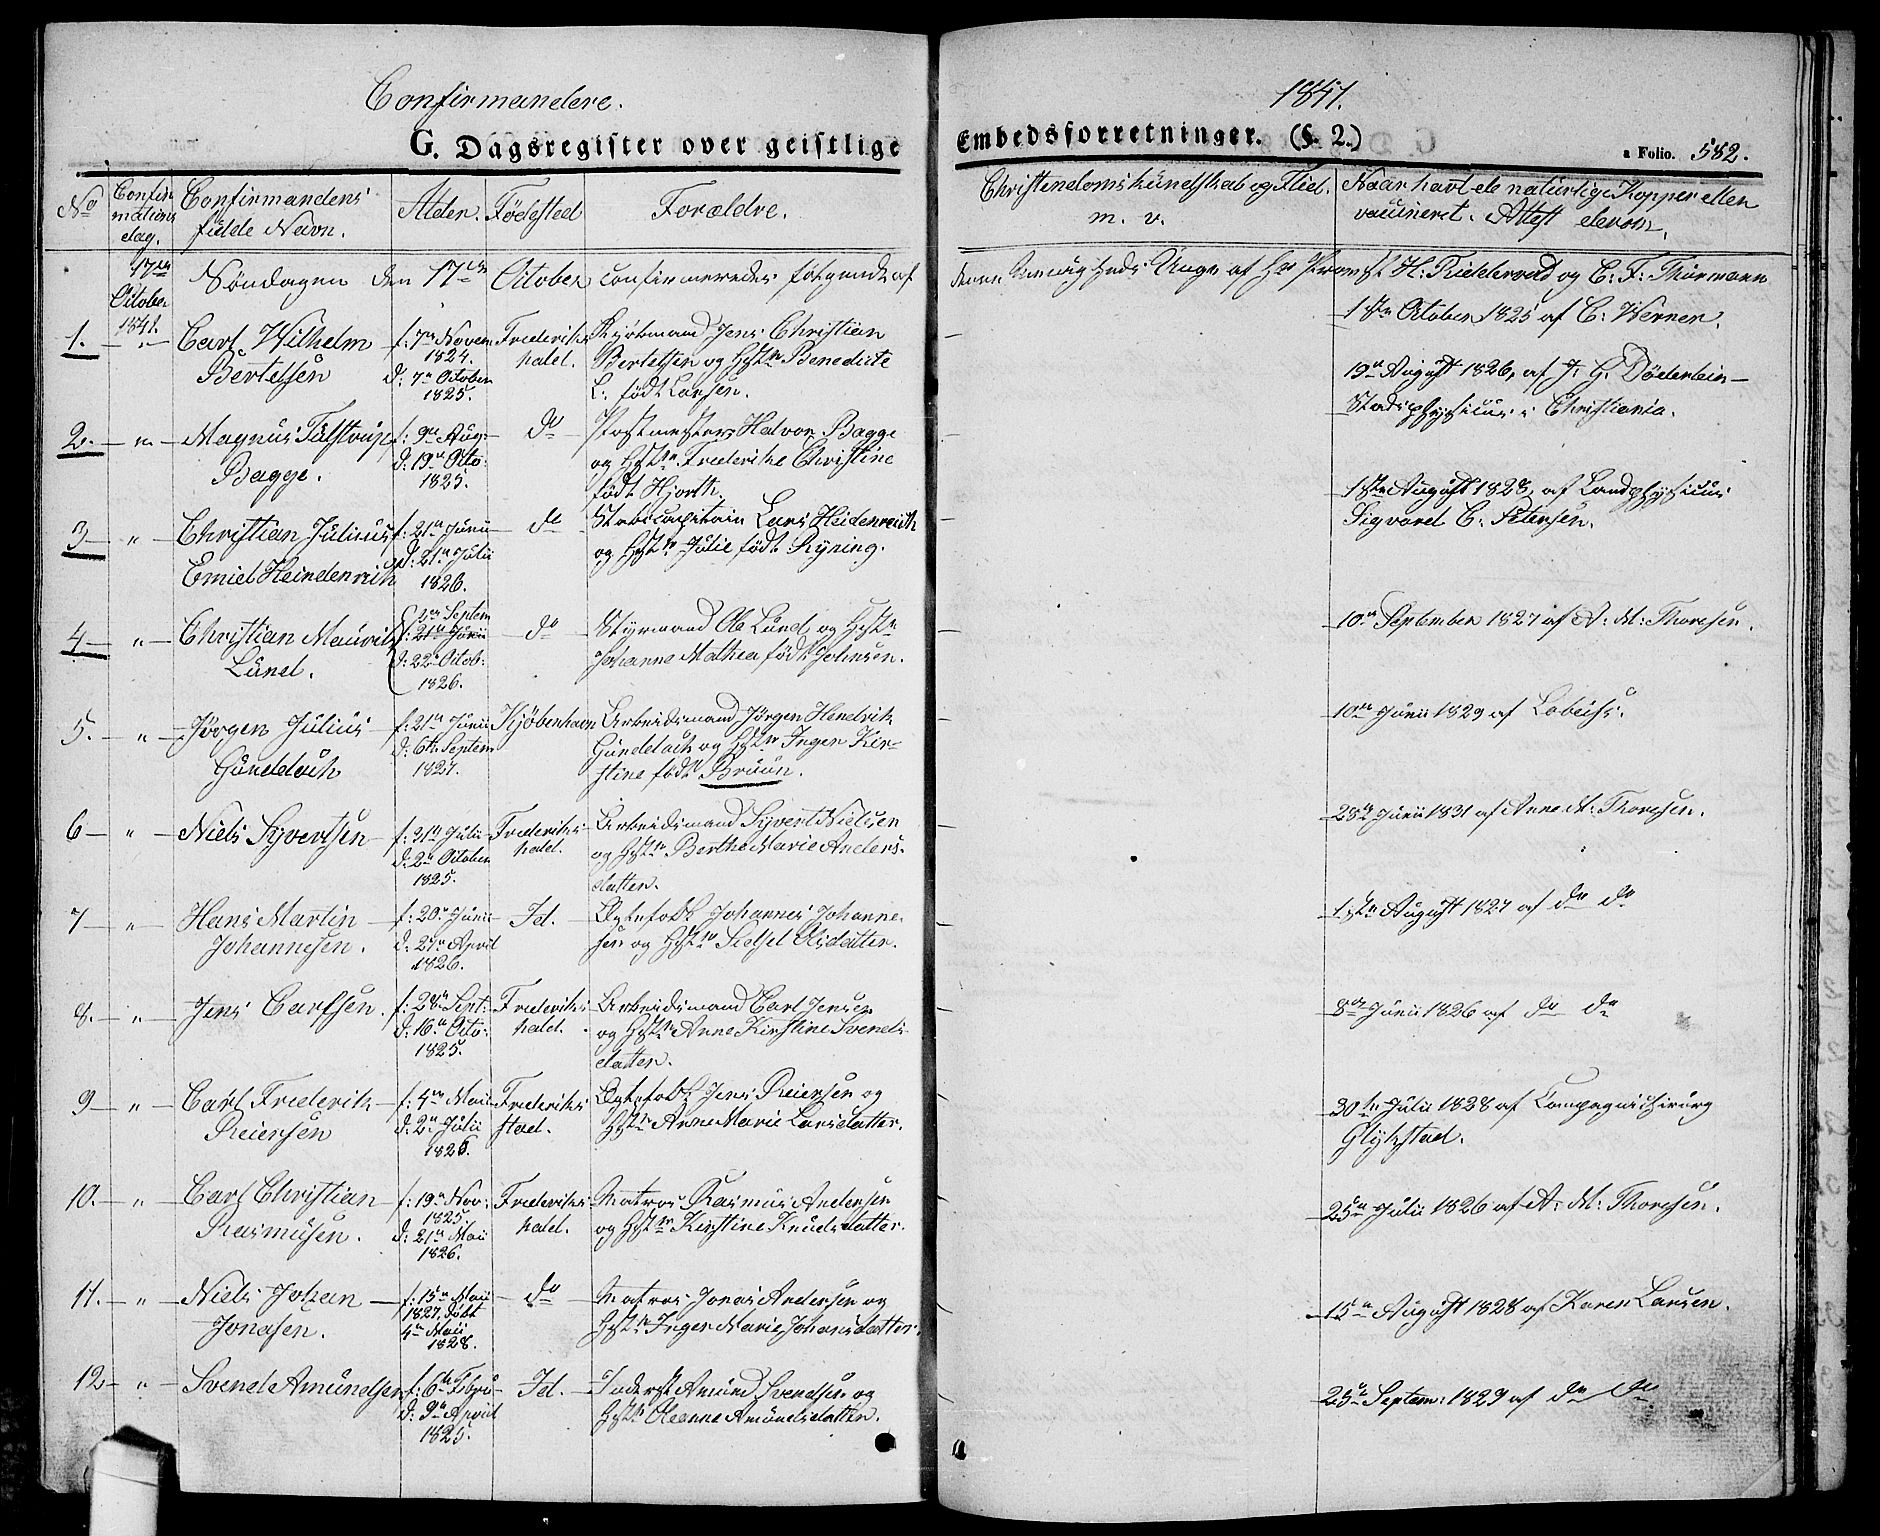 Confirmandere.
1841.
G. Dagsregister over geistlige
Embedsforretninger. (§. 2.)
a Folio. 582.
No
Confir
mations
dag.
Confirmandens
fulde Navn.
Alder.
Fødested
Forældre.
Christendomskundskab og Flid.
m. v.
Naar havt de naturlige Kopper eller
vaccineret. Attest derom.
17de
October
1841.
Søndagen den 17de October confirmeredes følgende af
denne Menigheds Unge af Hr Provst H. Riddervold og C. F. Thurmann
1. " Carl Wilhelm
Bertelsen
f: 7de Novem
1824.
d: 7de October
1825.
Frederiks
hald.
Kjøbmand Jens Christian
Bertelsen og Hstr Benedicte
L. født Larsen.
1ste October 1825 af C. Werner.
2. " Magnus Tulstrup
Bagge.
f: 9de Aug:
d: 19de Octo:
1825.
do
Postmester Halvor Bagge
og Hstr Frederike Christine
født Hjorth.
19de August 1826, af J. G. Døderlein
Stadsphysicus i Christiania.
3 " Christian Julius
Emiel Heindenreich
f: 21de Junii
d: 21de Julii
1826.
do
Stabscapitain Lars Heidenreich
og Hstr Julie født Ryning.
1ste August 1828, af Landphysicus
Sigvard C. Petersen.
4 " Christian Mauritz
Lund.
Septem
f: 21de Junii
d: 22de Octob:
1826.
do
Styrmand Ole Lund og Hstr
Johanne Mathea født Johnsen.
10de September 1827 af A. M. Thoresen.
5. " Jørgen Julius
Gundelach
f: 21de Junii
d: 6te Septem
1827.
Kjøbenhavn
Arbeidsmand Jørgen Hendrik
Gundelach og Hstr Inger Kir-
stine født Bruun.
10de Junii 1829 af Lobechs.
6 " Niels Syvertsen
f: 21de Julii
d: 2de October
1825.
Frederiks
hald.
Arbeidsmand Syvert Nielsen
og Hstr Berthe Marie Anders-
datter.
28de Junii 1831 af Anne M. Thoresen.
7 " Hans Martin
Johannesen.
f: 20de Junii
d: 27de April
1826.
Id.
Ægtefolk Johannes Johanne-
sen og Hstr Sidsel Olsdatter.
1ste August 1827 af do do
8. " Jens Carlsen.
f: 28de Sept:
d: 16de Octo:
1825.
Frederiks
hald.
Arbeidsmand Carl Jensen
og Hstr Anne Kirstine Svends-
datter.
8de Junii 1826 af do do
9 " Carl Frederik
Reiersen
f: 4de Maii
d: 2de Julii
1826.
Frederiks
stad.
Ægtefolk Jens Reiersen og
Hstr Anne Marie Larsdatter.
30te Julii 1828 af Compagnichirurg
Glykstad.
10. " Carl Christian
Rasmusen.
f: 19de Nov:
1825.
d: 21de Maii
1826.
Frederiks
hald.
Matros Rasmus Andersen
og Hstr Kirstine Knudsdatter.
25de Julii 1826 af A. M. Thoresen.
11. " Niels Johan
Jonasen.
f: 15de Maii
1827, døbt
4de Maii
1828.
do
Matros Jonas Andersen og
Hstr Inger Marie Johansdatter.
15de August 1828 af Karen Larsen.
12 " Svend Amundsen
f: 6te Febru
d: 9de April
1825.
Id.
Inderst Amund Svendsen og
Hstr Oleanne Amundsdatter.
25de Septem: 1829 af do do